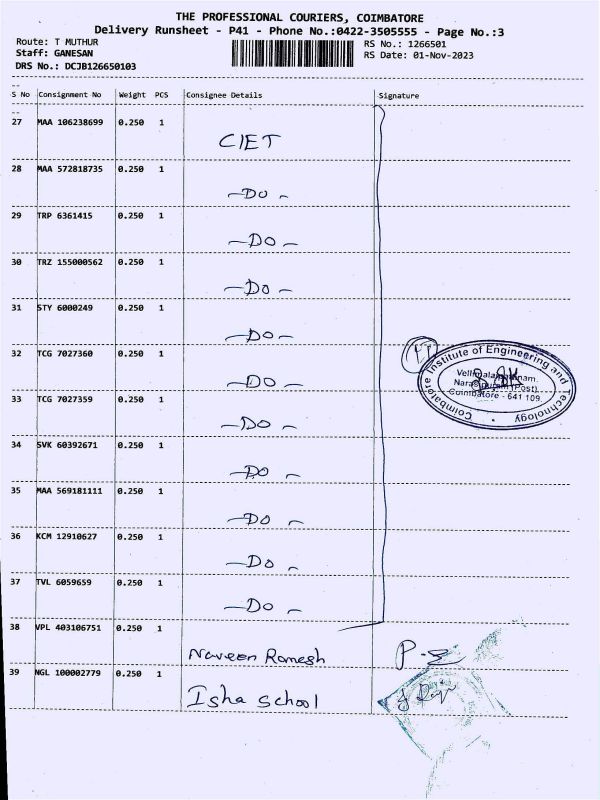 THE PROFESSIONAL COURIERS, COIMBATORE
Delivery Runsheet - P41 - Phone No.:0422-3505555 - Page No.:3
Route: T MUTHUR
RS No.: 1266501
Staff: GANESAN
RS Date: 01-Nov-2023
DRS No.: DCJB126650103
S No Consignment No Weight PCS Consignee Details Signature
27 MAA 106238699 0.250 1
CIET
28 MAA 572818735 0.250 1
-Do-
29 TRP 6361415 0.250 1
-Do-
30 TRZ 155000562 0.250 1
-Do-
31 STY 6000249 0.250 1
-Do-
32 TCG 7027360 0.250 1
-Do-
33 TCG 7027359 0.250 1
-Do-
34 SVK 60392671 0.250 1
-Do-
35 MAA 569181111 0.250 1
-Do-
36 KCM 12910627 0.250 1
-Do-
37 TVL 6059659 0.250 1
-Do-
Coimbatore Institute of Engineering and Technology
Narasipuram (Post)
Coimbatore - 641 109.
38 VPL 403106751 0.250 1
Naveen Ramesh
39 NGL 100002779 0.250 1
Isha School